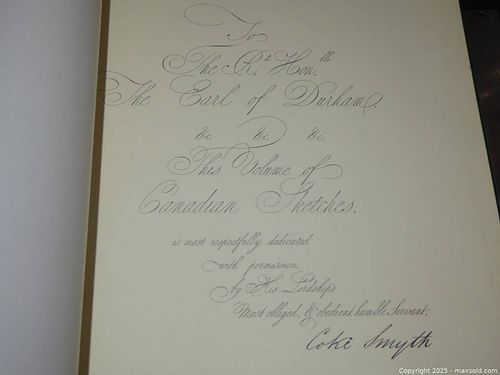 To
The Rt. Hon.ble
The Earl of Durham.
&c &c &c
This Volume of
Canadian Sketches.
is most respectfully dedicated
with permission,
by His Lordship's
Most obliged, & obedient humble Servant.
Coke Smyth
Copyright 2025 - maxsold.com